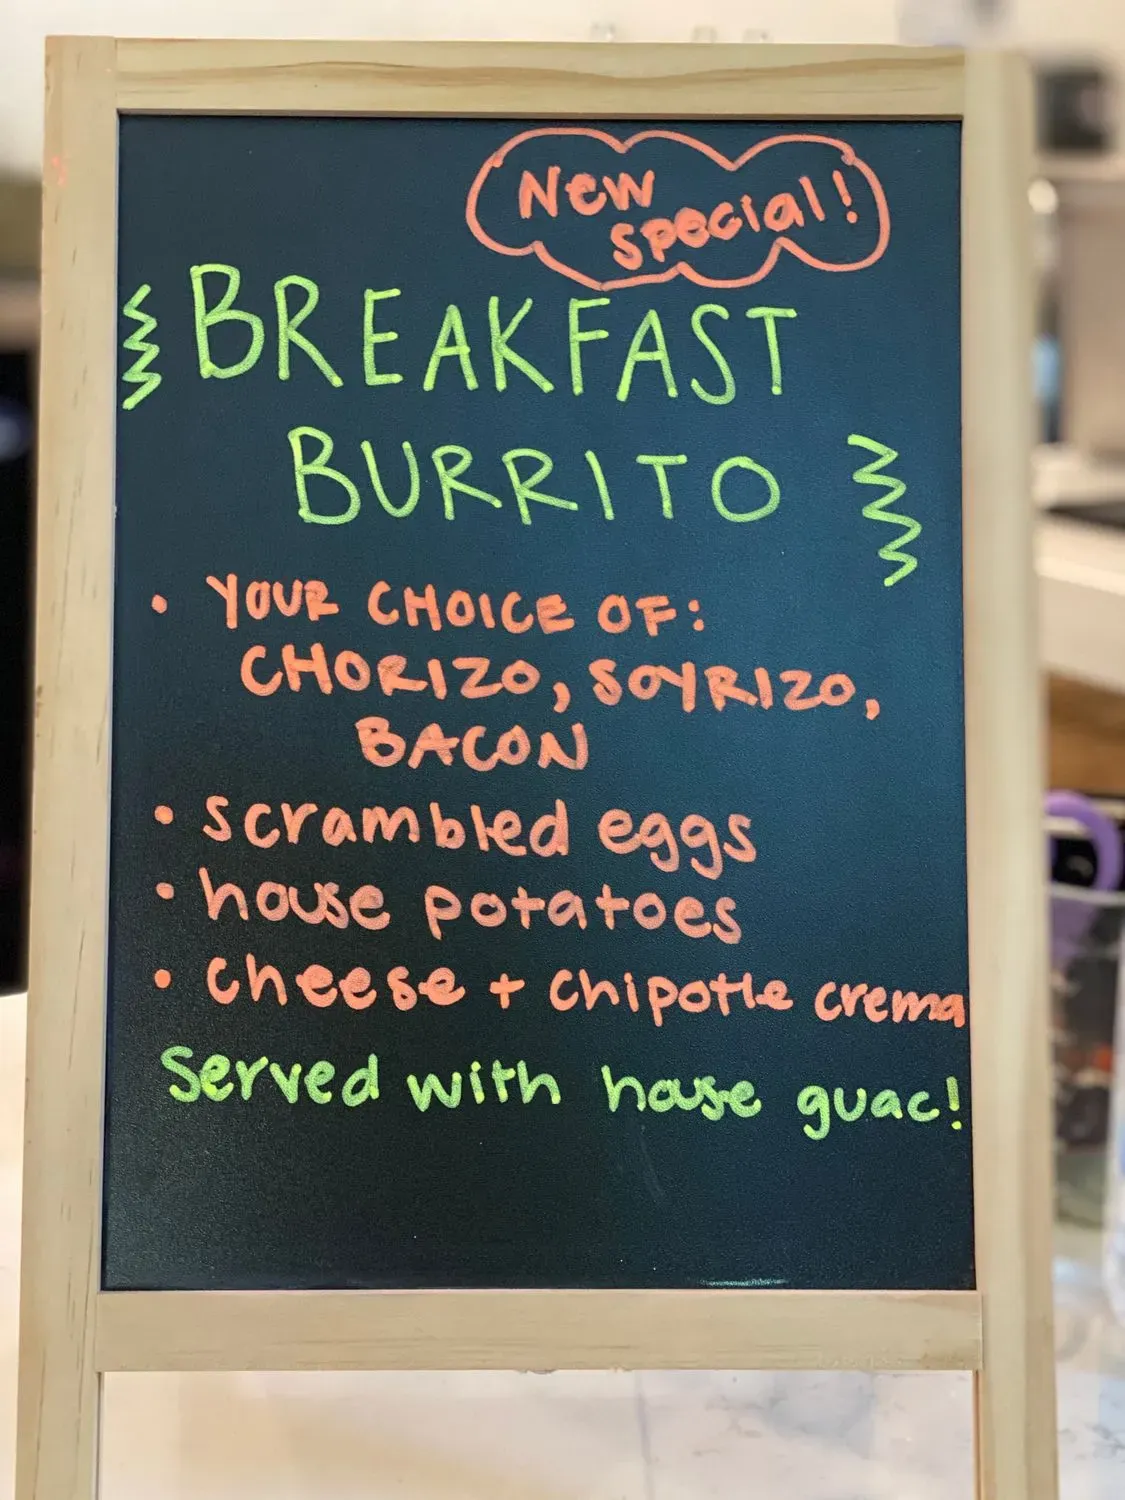 New
special!
BREAKFAST
BURRITO
• YOUR CHOICE OF:
CHORIZO, SOYRIZO,
BACON
• scrambled eggs
• house potatoes
• cheese + chipotle crema
Served with house guac!